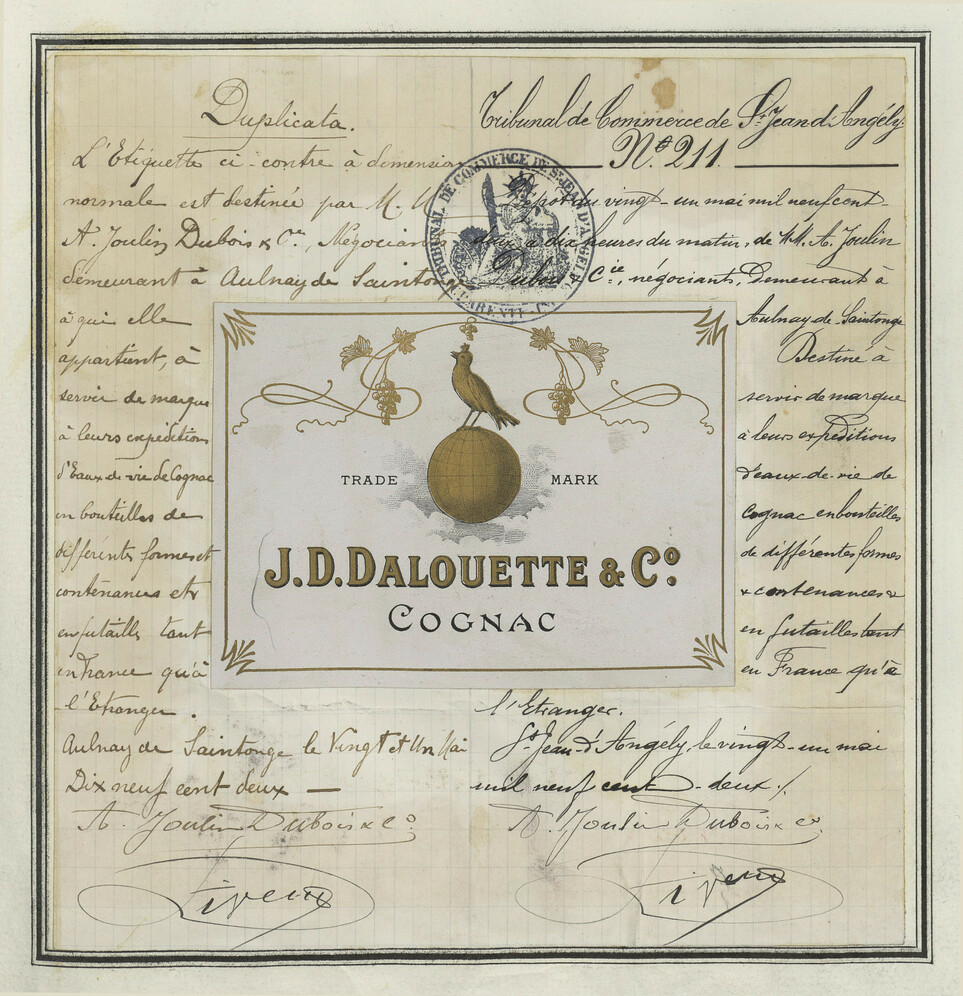 Duplicata.
L'Etiquette ci-contre à dimension
normale est destinée par M. M
A. Joulin Dubois & Cie, Négociants
demeurant à Aulnay de Saintonge
à qui elle
appartient, à
servir de marque
à leurs expéditions
d'Eaux-de-vie de Cognac
en bouteilles de
différentes formes et
contenances et
en futailles tant
en France qu'à
l'Etranger.
Aulnay de Saintonge le Vingt et Un Mai
Dix neuf cent deux —
A. Joulin Dubois & Co
Tribunal de Commerce de St Jean d'Angély
No. 211.
Dépôt du vingt-un mai mil neuf cent-
deux, à dix heures du matin, de MM. A. Joulin
Dubois & Cie, négociants, demeurant à
Aulnay-de-Saintonge
Destiné à
servir de marque
à leurs expéditions
d'eaux-de-vie de
Cognac en bouteilles
de différentes formes
& contenances &
en futailles tant
en France qu'à
l'Etranger.
St Jean-d'Angély, le vingt-un mai
mil neuf cent-deux ./.
A. Joulin Dubois & Co.
TRIBUNAL DE COMMERCE DE ST JEAN D'ANGELY
TRADE MARK
J.D.DALOUETTE & Co.
COGNAC